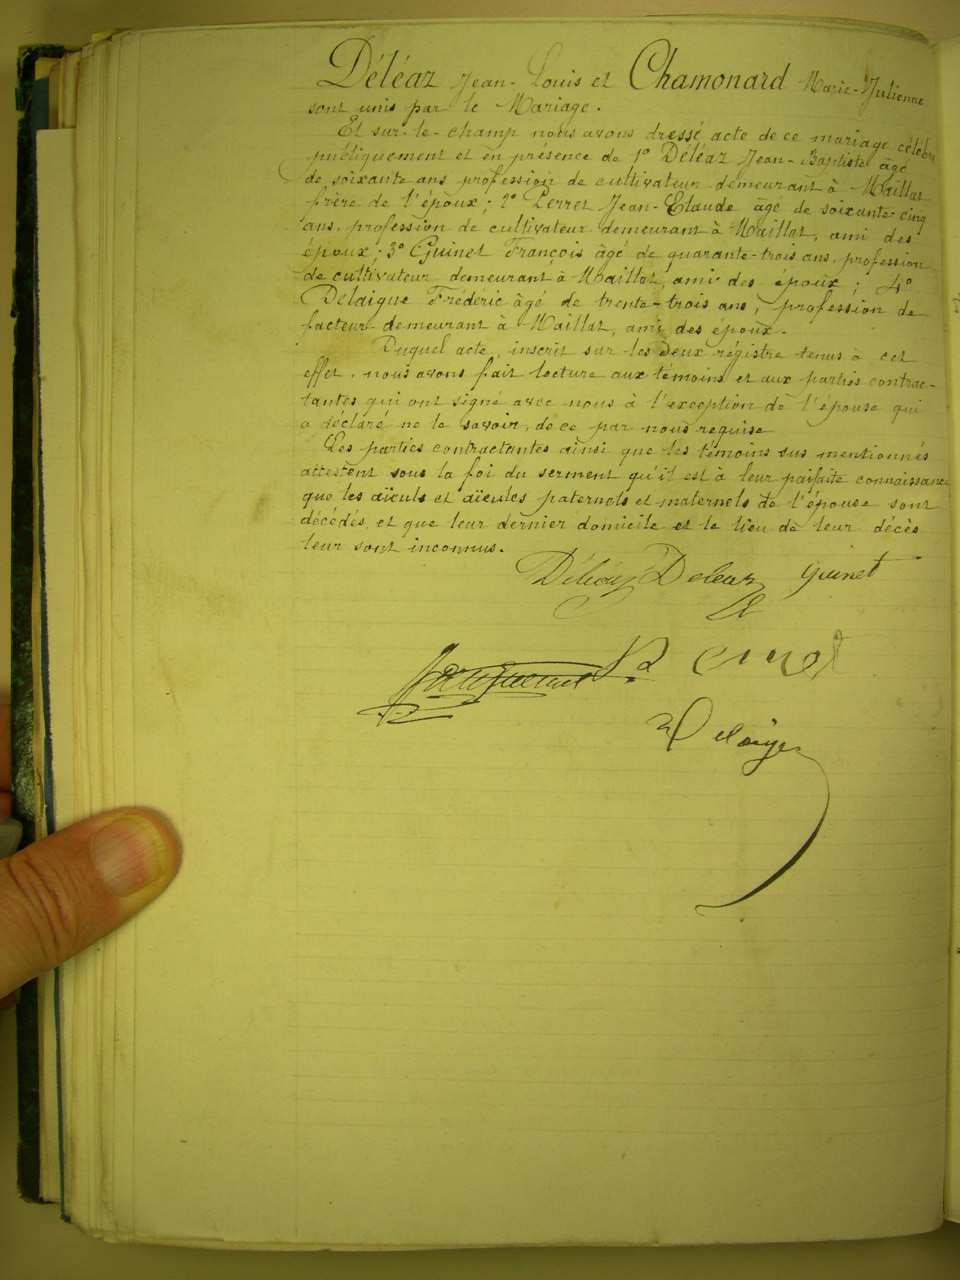 Déléaz Jean-Louis et Chamonard Marie-Julienne
sont unis par le Mariage.
Et sur-le-champ nous avons dressé acte de ce mariage célébré
publiquement et en présence de 1º Déléaz Jean-Baptiste âgé
de soixante ans profession de cultivateur demeurant à Maillat
frère de l'époux; 2º Perret Jean-Claude âgé de soixante-cinq
ans, profession de cultivateur demeurant à Maillat, ami des
époux; 3º Guinet François âgé de quarante-trois ans, profession
de cultivateur demeurant à Maillat, ami des époux; 4º
Delaigue Frédéric âgé de trente-trois ans, profession de
facteur demeurant à Maillat, ami des époux.
Duquel acte, inscrit sur les deux régistre tenus à cet
effet, nous avons fait lecture aux témoins et aux parties contrac-
tantes qui ont signé avec nous à l'exception de l'épouse qui
a déclaré ne le savoir, de ce par nous requise
Les parties contractantes ainsi que les témoins sus mentionnés
attestent sous la foi du serment qu'il est à leur parfaite connaissance
que les aïeuls et aïeules paternels et maternels de l'épouse sont
décédés, et que leur dernier domicile et le lieu de leur décès
leur sont inconnus.
Déléaz Deleaz Guinet